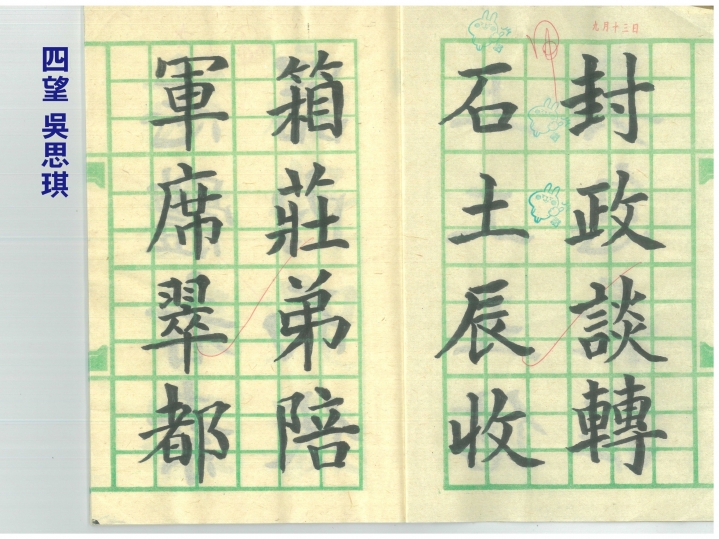 九月十三日
封政談轉
石土辰收
箱莊弟陪
軍席翠都
四望 吳思琪